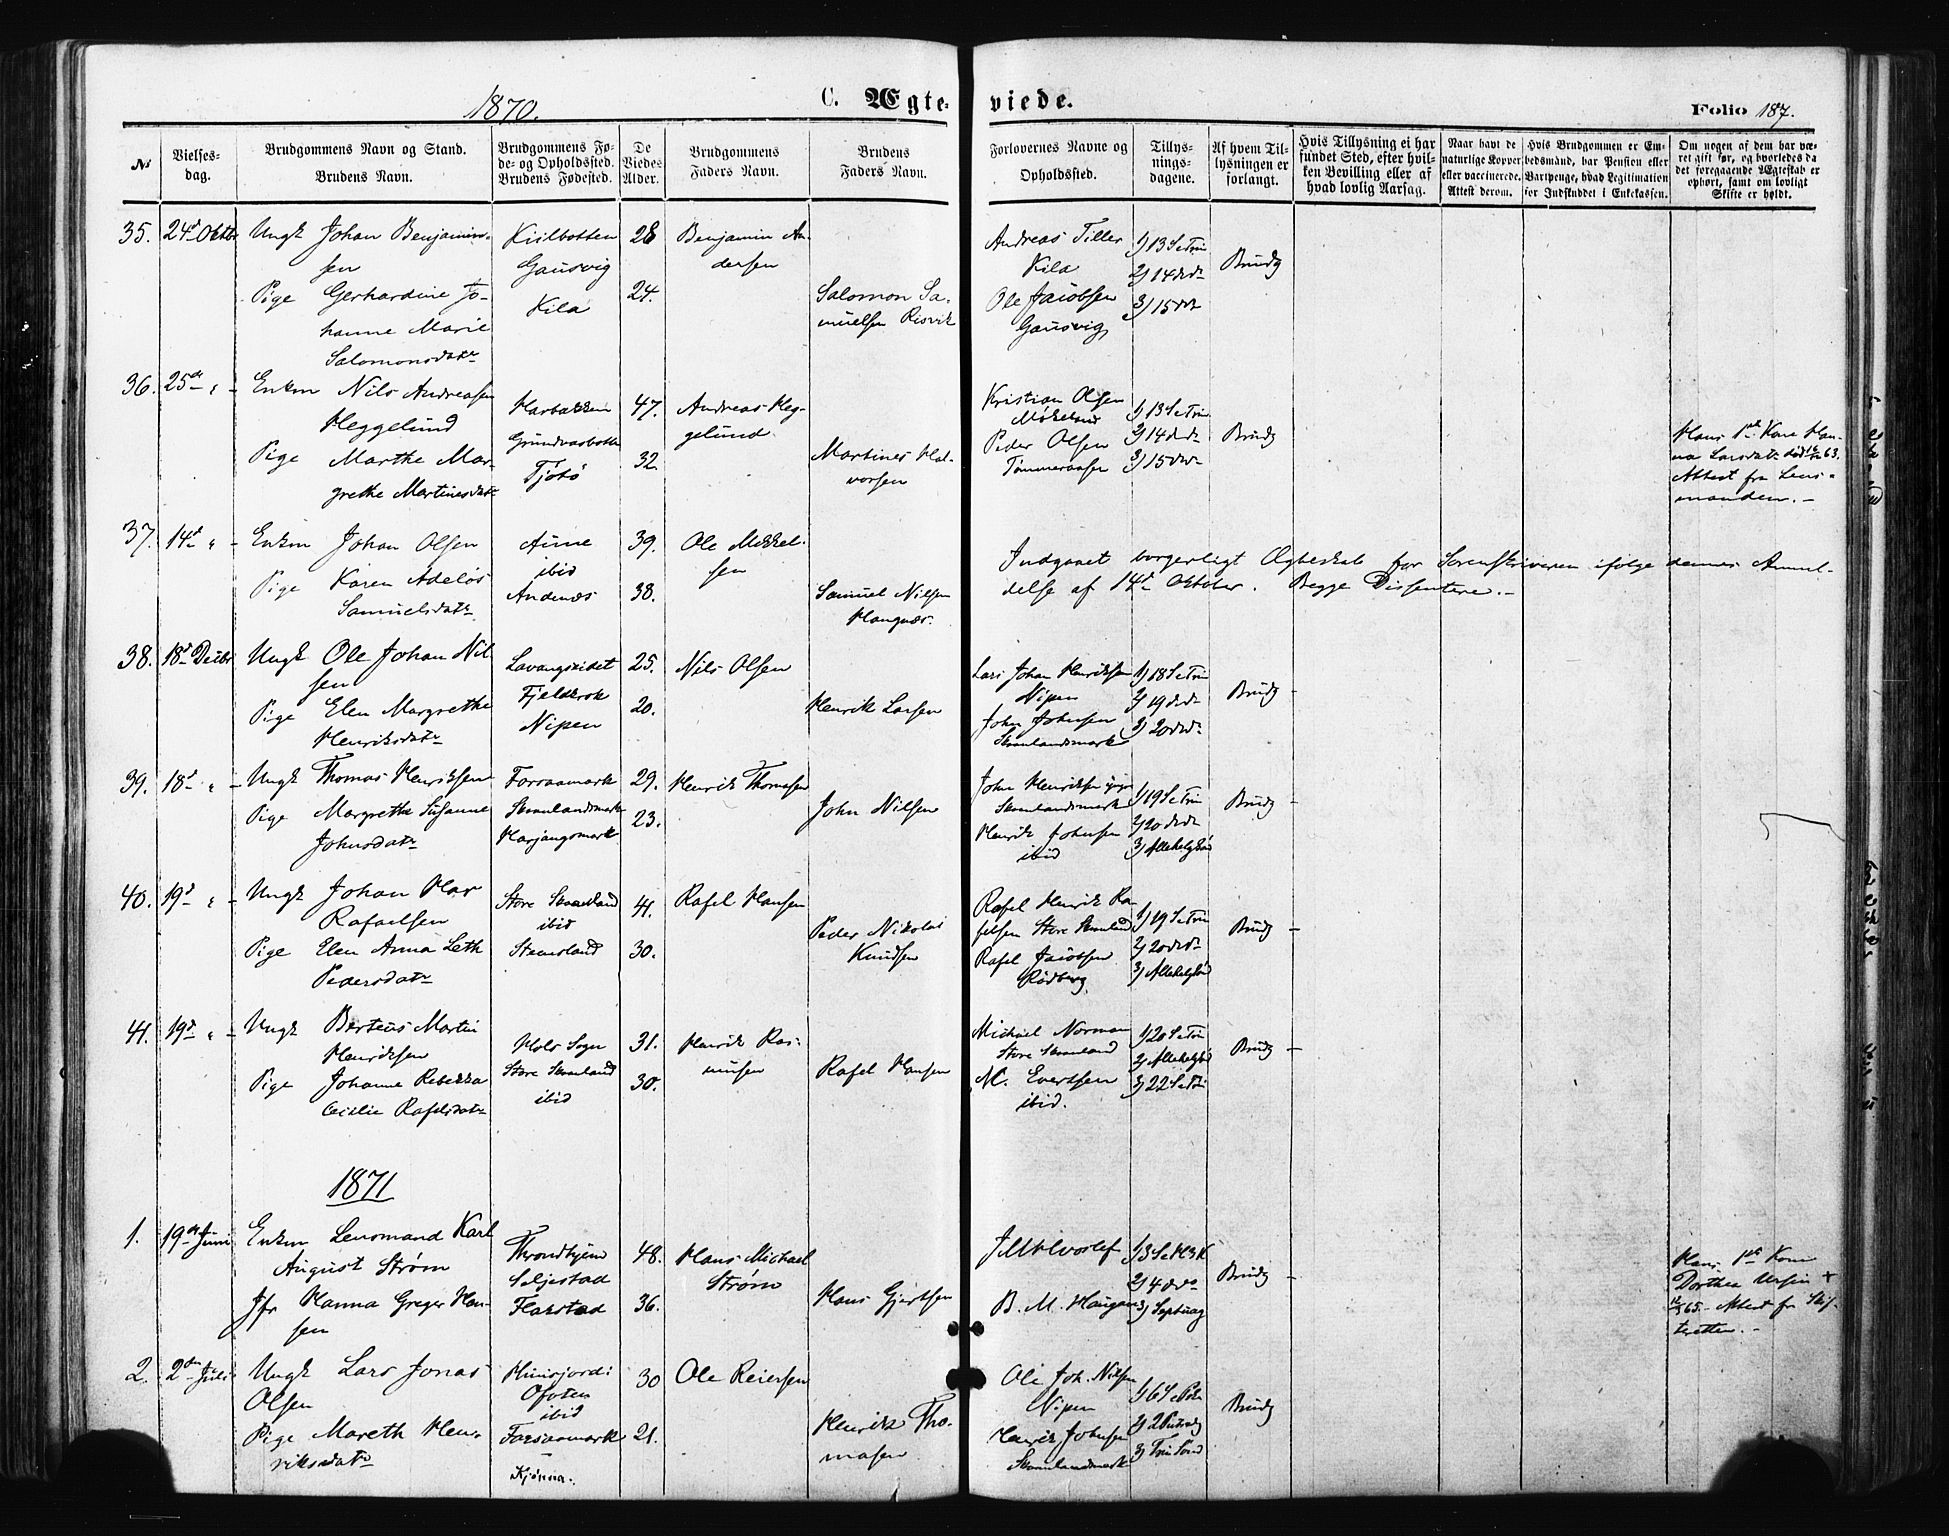 1870.
C. Ægte-
viede.
Folio 187.
No
Vielses-
dag.
Brudgommens Navn og Stand.
Brudens Navn.
Brudgommens Fø-
de- og Opholdssted.
Brudens Fødested.
De
Viedes
Alder.
Brudgommens
Faders Navn.
Brudens
Faders Navn.
Forlovernes Navne og
Opholdssted.
Tillys-
nings-
dagene.
Af hvem Til-
lysningen er
forlangt.
Hvis Tillysning ei har
fundet Sted, efter hvil-
ken Bevilling eller af
hvad lovlig Aarsag.
Naar havt de
naturlige Kopper
eller vaccinerede.
Attest derom.
Hvis Brudgommen er Em-
bedsmand, har Pension eller
Vartpenge, hvad Legitimation
for Indskuddet i Enkekassen.
Om nogen af dem har væ-
ret gift før, og hvorledes da
det foregaaende Ægteskab er
ophørt, samt om lovligt
Skifte er holdt.
35. 24d Oktbr
Ungk Johan Benjamin-
sen
Pige Gerhardine Jo-
hanne Marie
Salomonsdatr
Kiilbotten
Gausvig
Kila
28
24.
Benjamin An-
dersen
Salomon Sa-
muelsen Risvik
Andreas Tiller
Kila
Ole Jacobsen
Gausvig
1) 13 S e Trin
2) 14 d. d.
3) 15 d.
Brudg
36. 25de " -
Enkm Nils Andreasen
Heggelund
Pige Marthe Mar-
grethe Martinesdatr
Harbakken
Grundvasbotten
Tjøtø
47.
32.
Andreas Heg-
gelund.
Martines Hal-
vorsen
Kristian Olsen
Møkeland
Peder Olsen
Tømmeraasen
1) 13 S e Trin
2) 14 d. d.
3) 15 d. d.
Brudg
Hans 1ste Kone Han-
na Larsdatr død 63.
Attest fra Lens-
manden. -
37. 14d " -
Enkm Johan Olsen
Pige Karen Adelos
Samuelsdatr
Aune
ibid
Andenæs
39.
38.
Ole Mikkel-
sen
Samuel Nilsen
Hangnæs.
Indgaaet borgerligt Ægteskab for Sorenskriveren ifølge dennes Anmel-
delse af 14d Oktober. Begge Dissentere. -
38. 18d Decbr
Ungk Ole Johan Nil-
sen
Pige Elen Margrethe
Henriksdatr
Lavangseidet
Fjeldkrok
Nipen
25.
20.
Nils Olsen
Henrik Larsen
Lars Johan Henriksen
Nipen
John Johnsen
Skaanlandsmark
1) 18 S e Trin
2) 19 d. d.
3) 20 d. d.
Brudg -
39. 18d " -
Ungk Thomas Henriksen
Pige Margrethe Susanne
Johnsdatr
Forraamark
Skaanlandsmark
Harjangsmark
29.
23.
Henrik Thomasen
John Nilsen
John Henriksen
Skaanlandsmark
Henrik Johnsen
ibid
1) 19 S e Trin
2) 20 d. d.
3) Allehelgsd
Brudg -
40. 19d " -
Ungk Johan Mar
Rafaelsen
Pige Elen Anna Leth
Pedersdatr
Store Skaanland
ibid
Steinsland
41.
30.
Rafel Hansen
Peder Nikolai
Knudsen
Rafel Henrik Ra-
felsen Store Skaanland
Rafel Jacobsen
Rødberg.
1) 19 S e Trin
2) 20 d. d.
3) Allehelgsd
Brudg -
41. 19d " -
Ungk Berteus Martin
Henriksen
Pige Johanne Rebekka
Cecilie Rafelsdatr
Hols Sogn
Store Skaanland
ibid
31.
30.
Henrik Ras-
musen
Rafel Hansen
Michael Norman
Store Skaanland
M. Evertsen
ibid.
1) 20 S e Trin
2) Allehelgsd
3) 22 S e Tri
Brudg -
1871
1. 19de Juni
Enkm Lensmand Karl
August Strøm
Jfr Hanna Greger Han-
sen
Throndhjem
Seljestad
Harstad
48.
36.
Hans Michael
Strøm
Hans Gjertsen
B. M. Haugan
1) 3 S e H3K
2) 4 d. d.
3) Septuag
Brudg -
Hans 1ste Kone
Dorthea Ursin +
65. - Attest fr Skif-
teretten. -
2. 2den Juli
Ungk Lars Jonas
Olsen
Pige Mareth Hen-
riksdatr
Ofoten
ibid
Forraamark
Kjønna.
30
21.
Ole Reiersen
Henrik Tho-
masen
Ole Joh. Nilsen
Nipen
Henrik Johnsen
Skaanlandsmark
3) Trin Sønd
Brudg